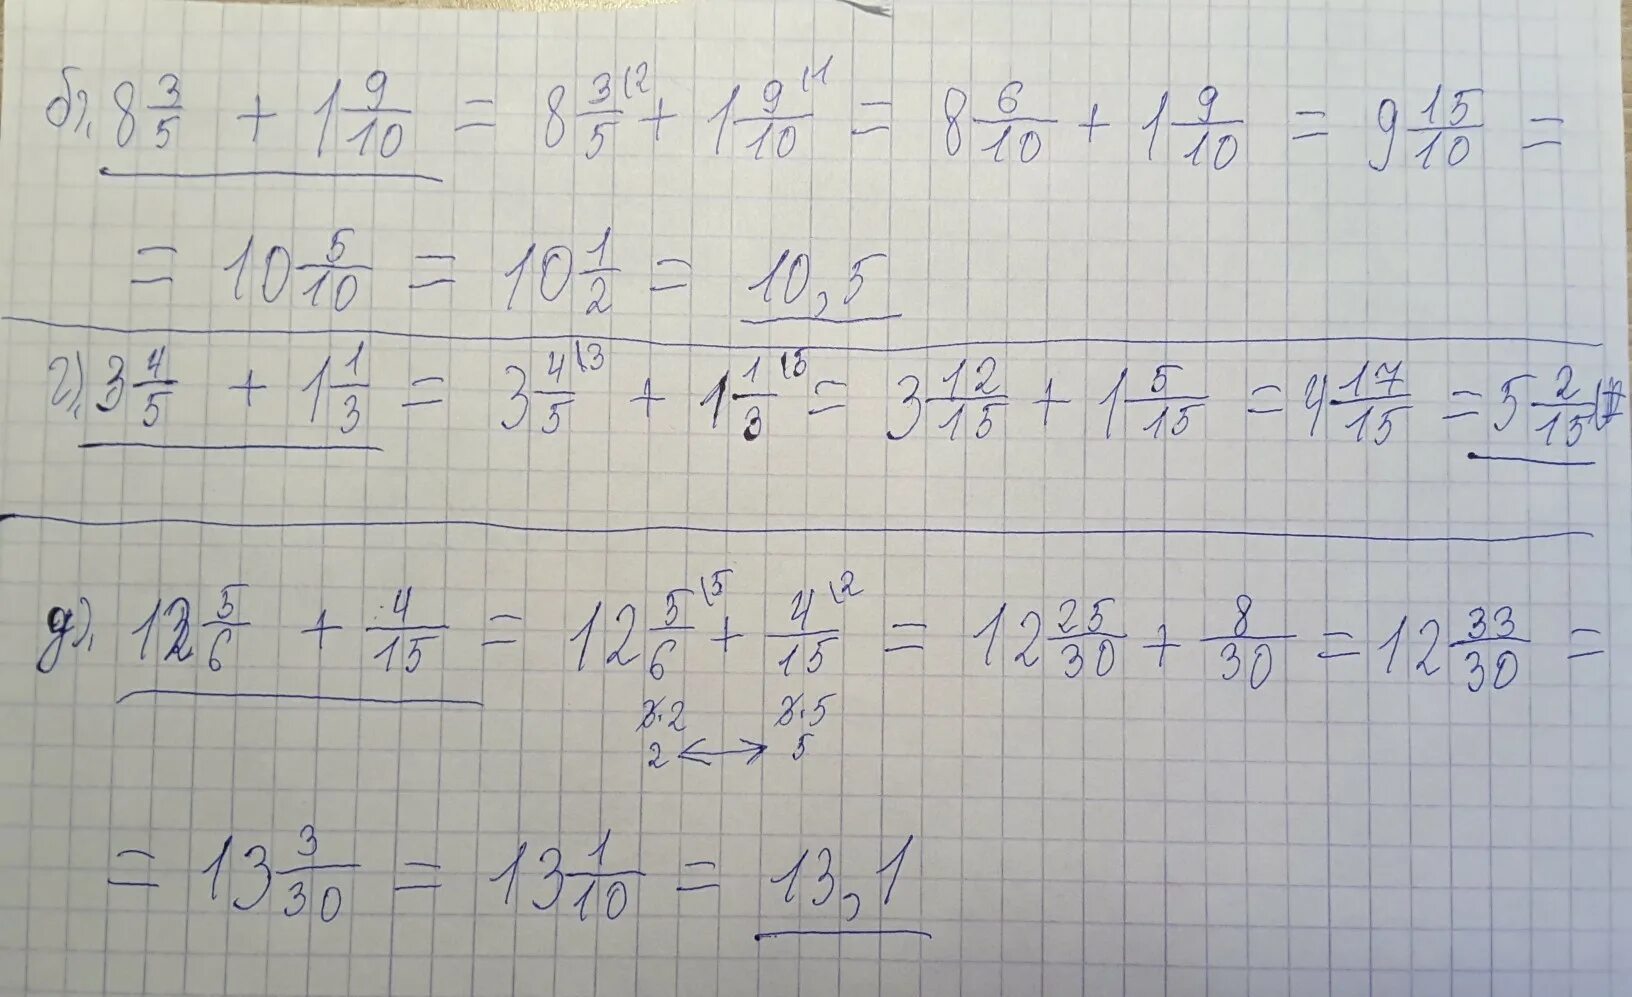 б). 8 3/5 + 1 9/10 = 8 3/5 \2 + 1 9/10 \1 = 8 6/10 + 1 9/10 = 9 15/10 =
= 10 5/10 = 10 1/2 = 10,5
г). 3 4/5 + 1 1/3 = 3 4/5 \3 + 1 1/3 \5 = 3 12/15 + 1 5/15 = 4 17/15 = 5 2/15
д). 12 5/6 + 4/15 = 12 5/6 \5 + 4/15 \2 = 12 25/30 + 8/30 = 12 33/30 =
3·2 3·5
2 ↔ 5
= 13 3/30 = 13 1/10 = 13,1